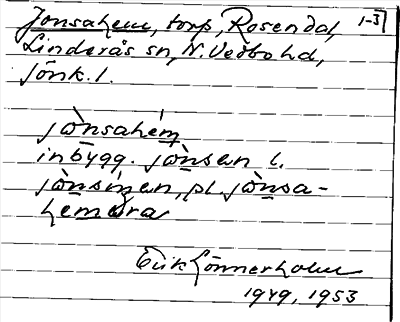 Jonsahem, torp, Rosendal, 1-3
Linderås sn, N. Vedbo hd,
Jönk. l.
jònsahém
inbygg. jònsan l.
jònsingen, pl. jònsa-
hemara
Erik Lönnerholm
1949, 1953